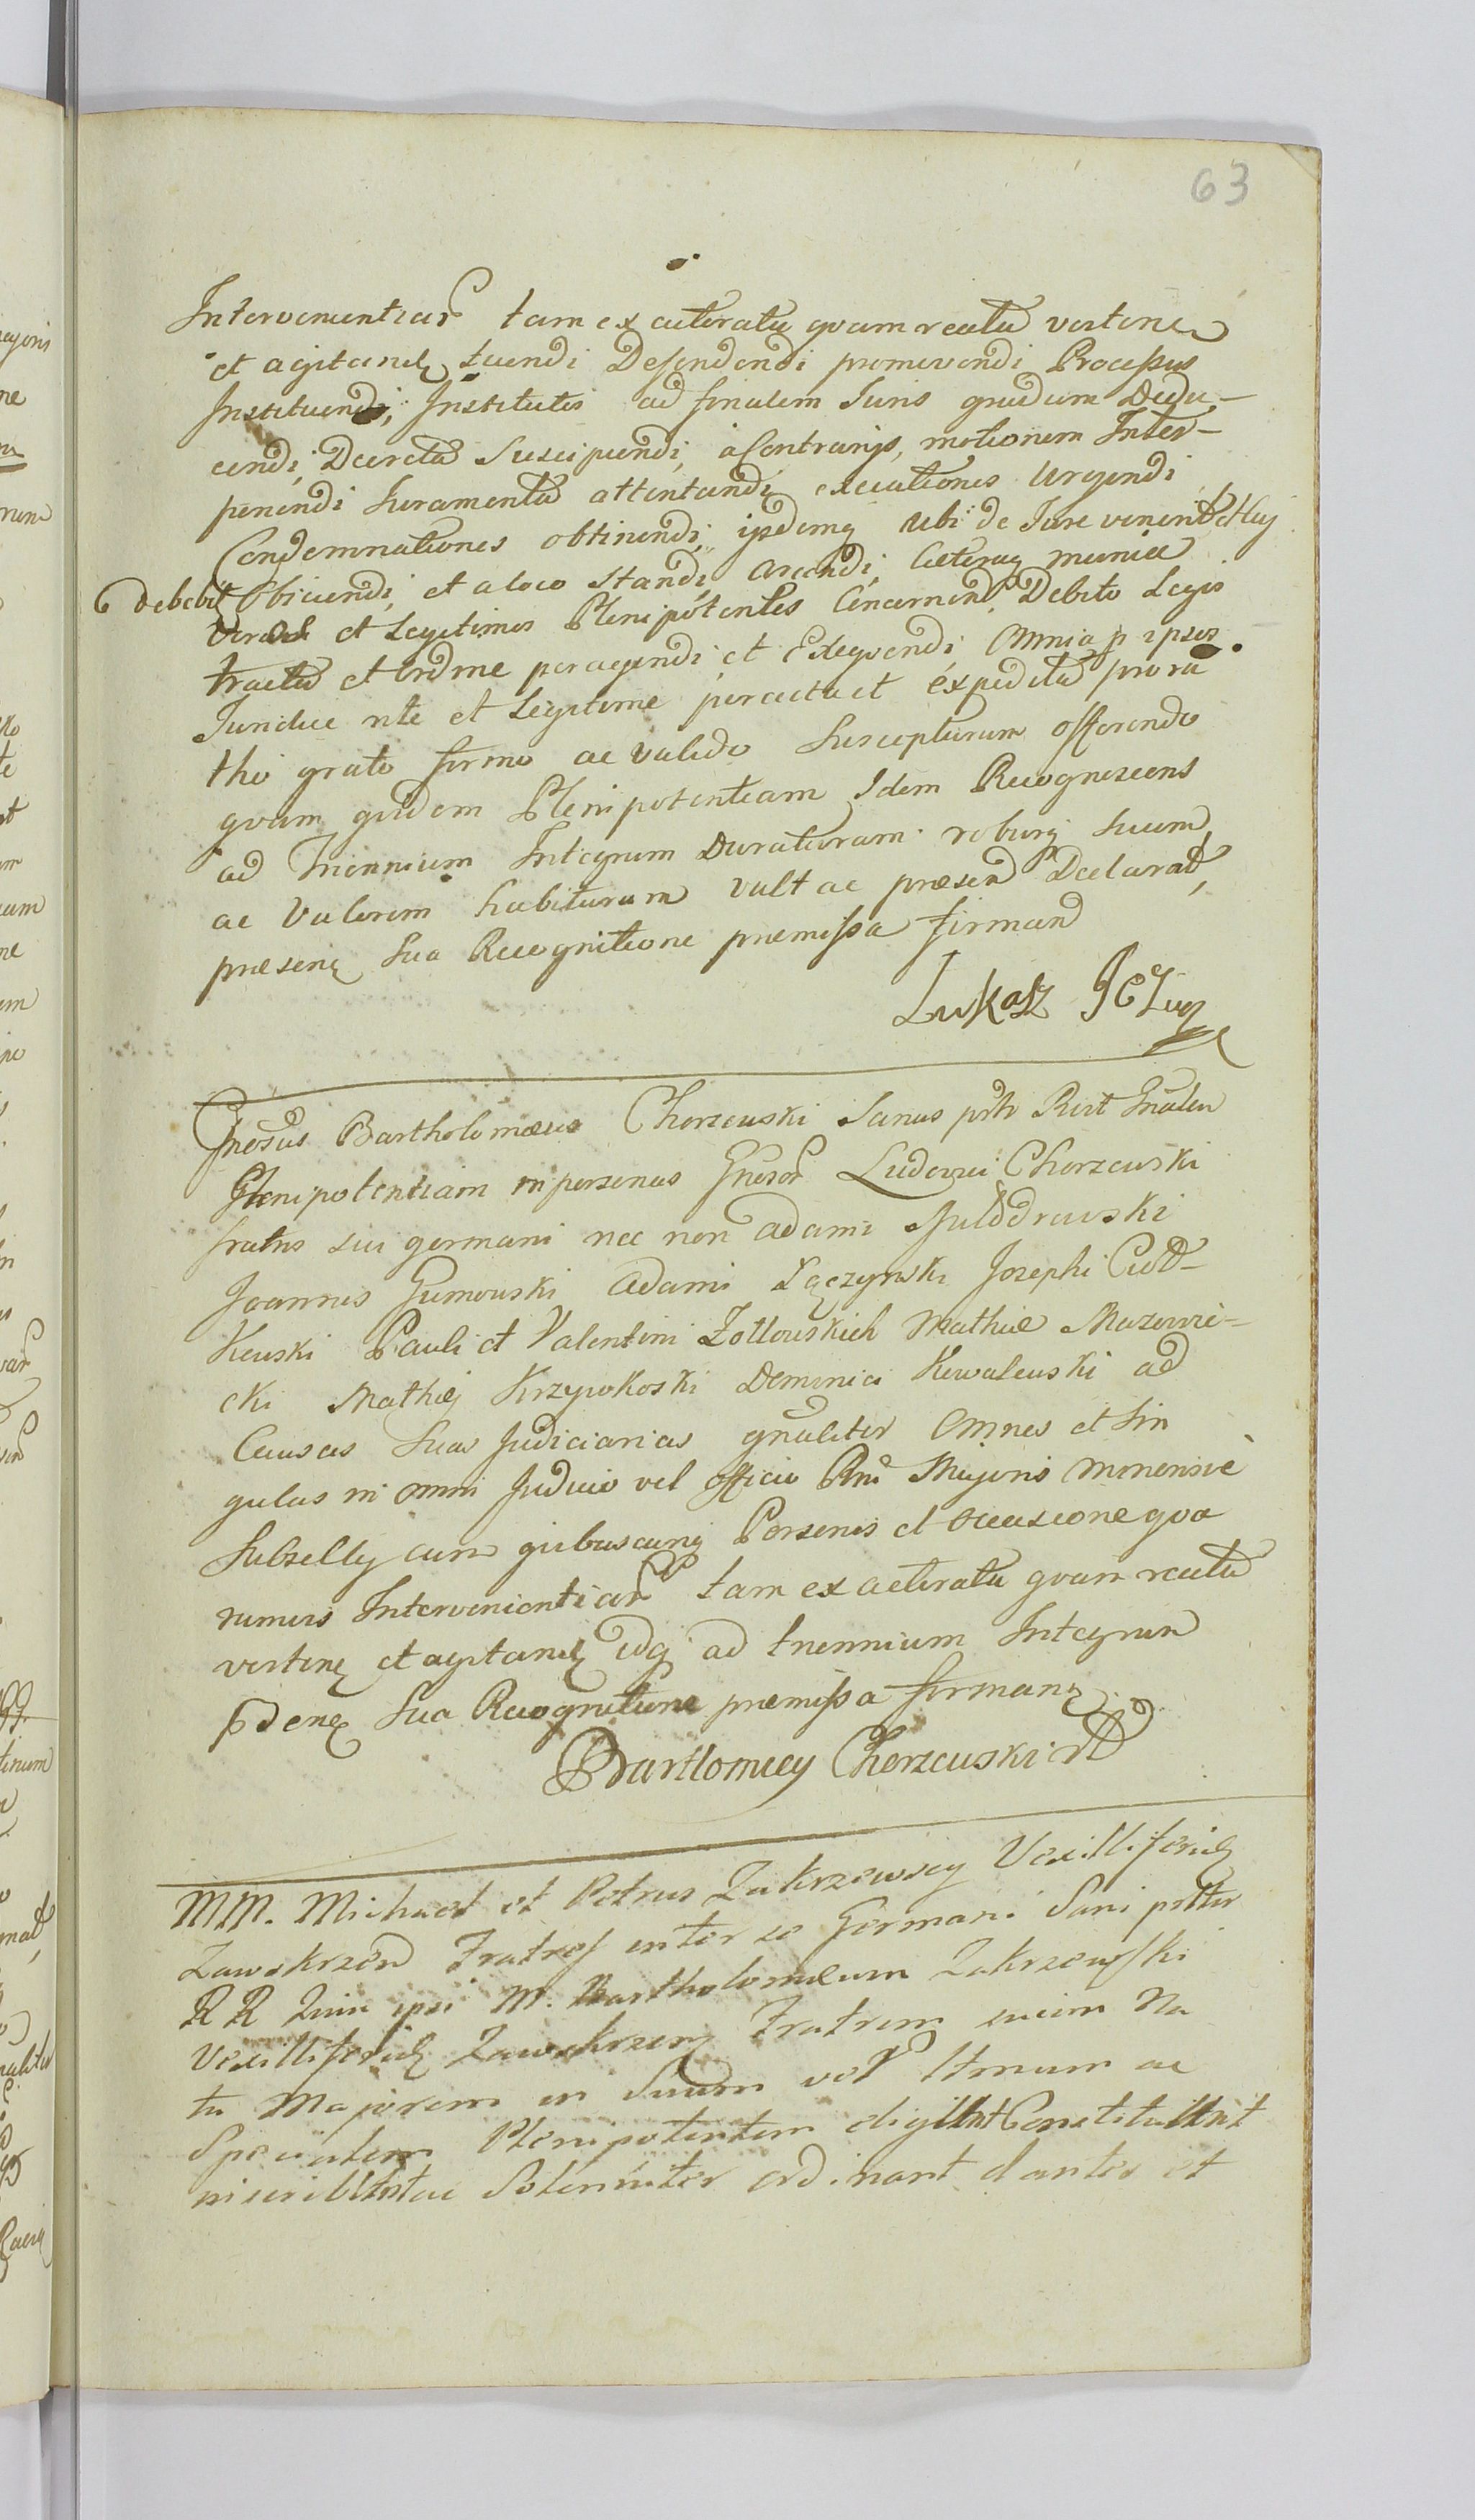 63
Intervenientiar tam ex actoratu qvam reatu verten
et agitand tuendi Defendendi promovendi Processus
Instituendi, Institutis ad finalem Juris gradum Dedu-
cendi, Decreta Suscipiendi, a Contrariis, motionem Inter-
ponendi Juramenta attentandi executiones Urgendi
Condemnationes obtinendi, ipsdemq ubi de Jure venerit et
debebit Obiiciendi, et a loco Standi, arcendi, Caeteraq munia
Veros et Legitimos Plenipotentes Concernen. Debito Legis
tractu et ordine peragendi, et Exeqvendi, Omnia p ipsos
Juridice rite et Legitime peracta et expedita, pro ra
tho grato firmo ac valido Suscepturum offerendo
qvam qvidem Plenipotentiam Idem Recognoscens
ad Triennium Integrum Duraturam roburq Suum
ac Valorem habituram vult ac praesen Declarat,
praesenq Sua Recognitione praemissa firmand
Lukasz
Gnosus Bartholomaeus Chorzewski Sanus prtr Rivit Gnalem
Plenipotentiam in personas Gnosor Ludovici Chorzewski
fratris sui germani nec non Adami
Joannis Gumowski Adami Łączynski Josephi Ciót-
kowski Pauli et Valentini Zołtowskich Mathiae Mazowie-
cki Mathiae Krzywkoski Dominici Kowalewski ad
Causas Suas Judiciarias gnaliter Omnes et Sin
gulas in omni Judicio vel Officio Rni Majoris Minorisve
Subsellij cum qvibuscunq Personis et occasione qva
rumvis Intervenientiar tam ex actoratu qvam reatu
verten et agitand idq ad triennium Integrum
Sua Recognitione praemissa firmanq
Bartlomiey Chorzewski
MM. Michael et Petrus Zakrzewscy Vexilliferid
Zawskrzen Fratres inter se Germani Sani prttr
RR Quia ipsi M. Bartholomaeum Zakrzewski
Vexilliferid Zawskrzen Fratrem suum Na
tu Majorem in Suum ver Ltmum ac
Specialem Plenipotentem Constituunt
ac Solenniter ordinant dantes et